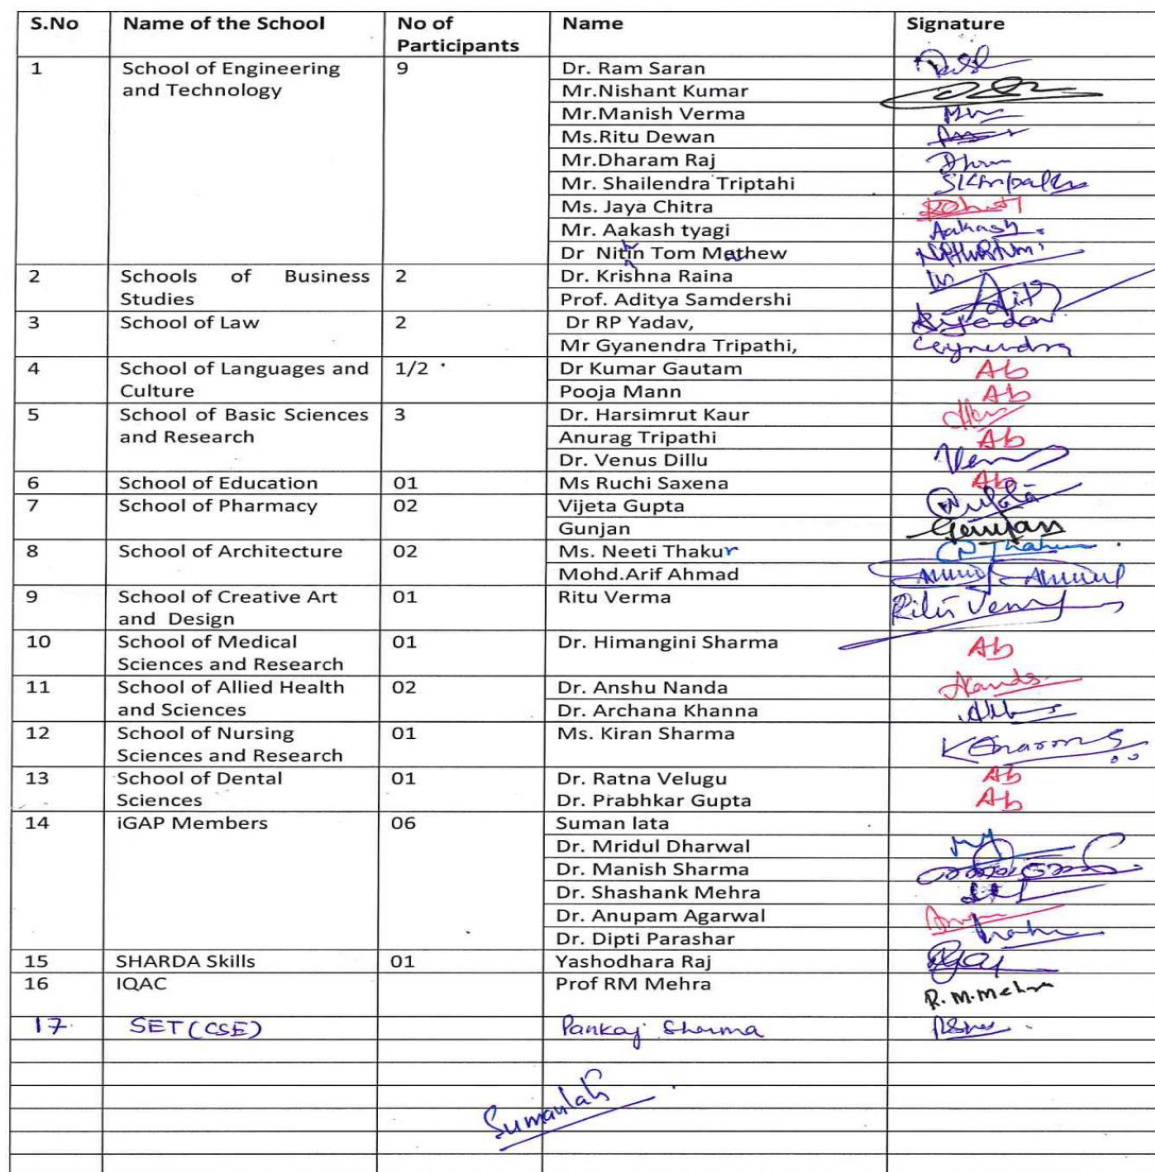 S.No Name of the School No of Participants Name Signature
1 School of Engineering and Technology 9 Dr. Ram Saran
Mr.Nishant Kumar
Mr.Manish Verma
Ms.Ritu Dewan
Mr.Dharam Raj
Mr. Shailendra Triptahi
Ms. Jaya Chitra
Mr. Aakash tyagi Aakash
Dr Nitin Tom Mathew
2 Schools of Business Studies 2 Dr. Krishna Raina
Prof. Aditya Samdershi
3 School of Law 2 Dr RP Yadav,
Mr Gyanendra Tripathi,
4 School of Languages and Culture 1/2 Dr Kumar Gautam Ab
Pooja Mann Ab
5 School of Basic Sciences and Research 3 Dr. Harsimrut Kaur
Anurag Tripathi Ab
Dr. Venus Dillu
6 School of Education 01 Ms Ruchi Saxena Ab
7 School of Pharmacy 02 Vijeta Gupta
Gunjan Gunjan
8 School of Architecture 02 Ms. Neeti Thakur
Mohd.Arif Ahmad
9 School of Creative Art and Design 01 Ritu Verma
10 School of Medical Sciences and Research 01 Dr. Himangini Sharma Ab
11 School of Allied Health and Sciences 02 Dr. Anshu Nanda
Dr. Archana Khanna
12 School of Nursing Sciences and Research 01 Ms. Kiran Sharma
13 School of Dental Sciences 01 Dr. Ratna Velugu Ab
Dr. Prabhkar Gupta Ab
14 iGAP Members 06 Suman lata
Dr. Mridul Dharwal
Dr. Manish Sharma
Dr. Shashank Mehra
Dr. Anupam Agarwal
Dr. Dipti Parashar
15 SHARDA Skills 01 Yashodhara Raj
16 IQAC Prof RM Mehra R.M.Mehra
17. SET (CSE) Pankaj Sharma
Sumanlata